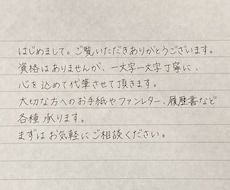 はじめまして。ご覧いただきありがとうございます。
資格はありませんが、一文字一文字丁寧に、
心を込めて代筆させて頂きます。
大切な方へのお手紙やファンレター、履歴書など
各種承ります。
まずはお気軽にご相談ください。